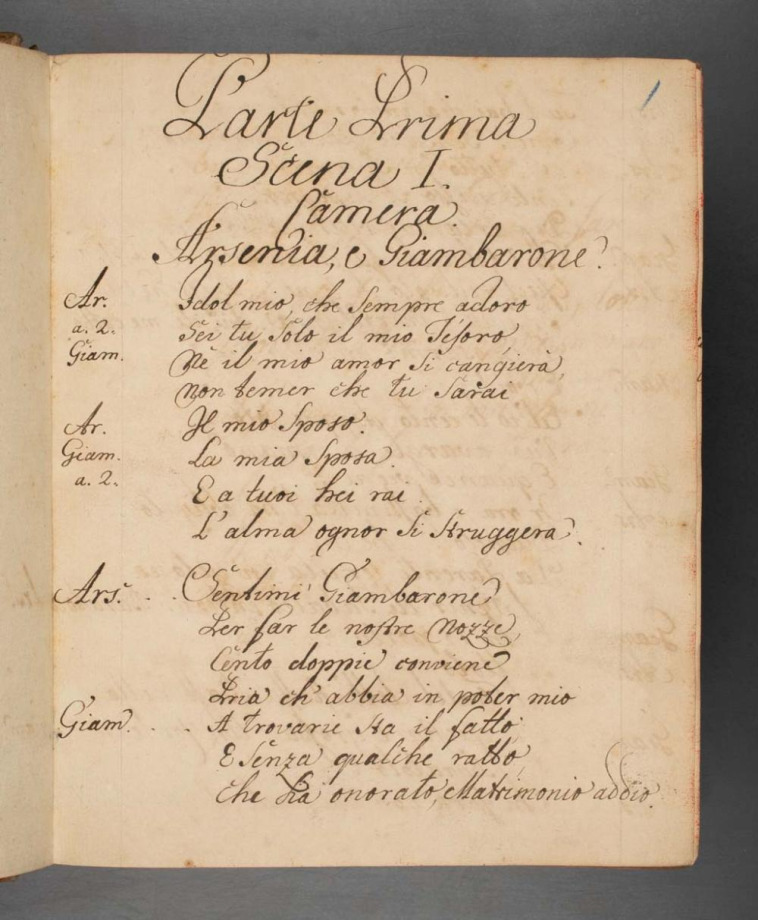 Parte Prima
Scena I.
Camera.
Arsenia, e Giambarone.
Ar. Idol mio, che sempre adoro
a. 2. Sei tu solo il mio Tesoro,
Giam. Nè il mio amor si cangierà,
Non temer che tu sarai
Ar. Il mio Sposo.
Giam. La mia Sposa.
a. 2. E a tuoi bei rai
L'alma ognor si struggerà.
Ars. . . Sentimi Giambarone
Per far le nostre Nozze,
Cento doppie conviene
Pria ch' abbia in poter mio
Giam. . . A trovarle sta il fatto,
E senza qualche ratto,
Che sia onorato, Matrimonio addio.